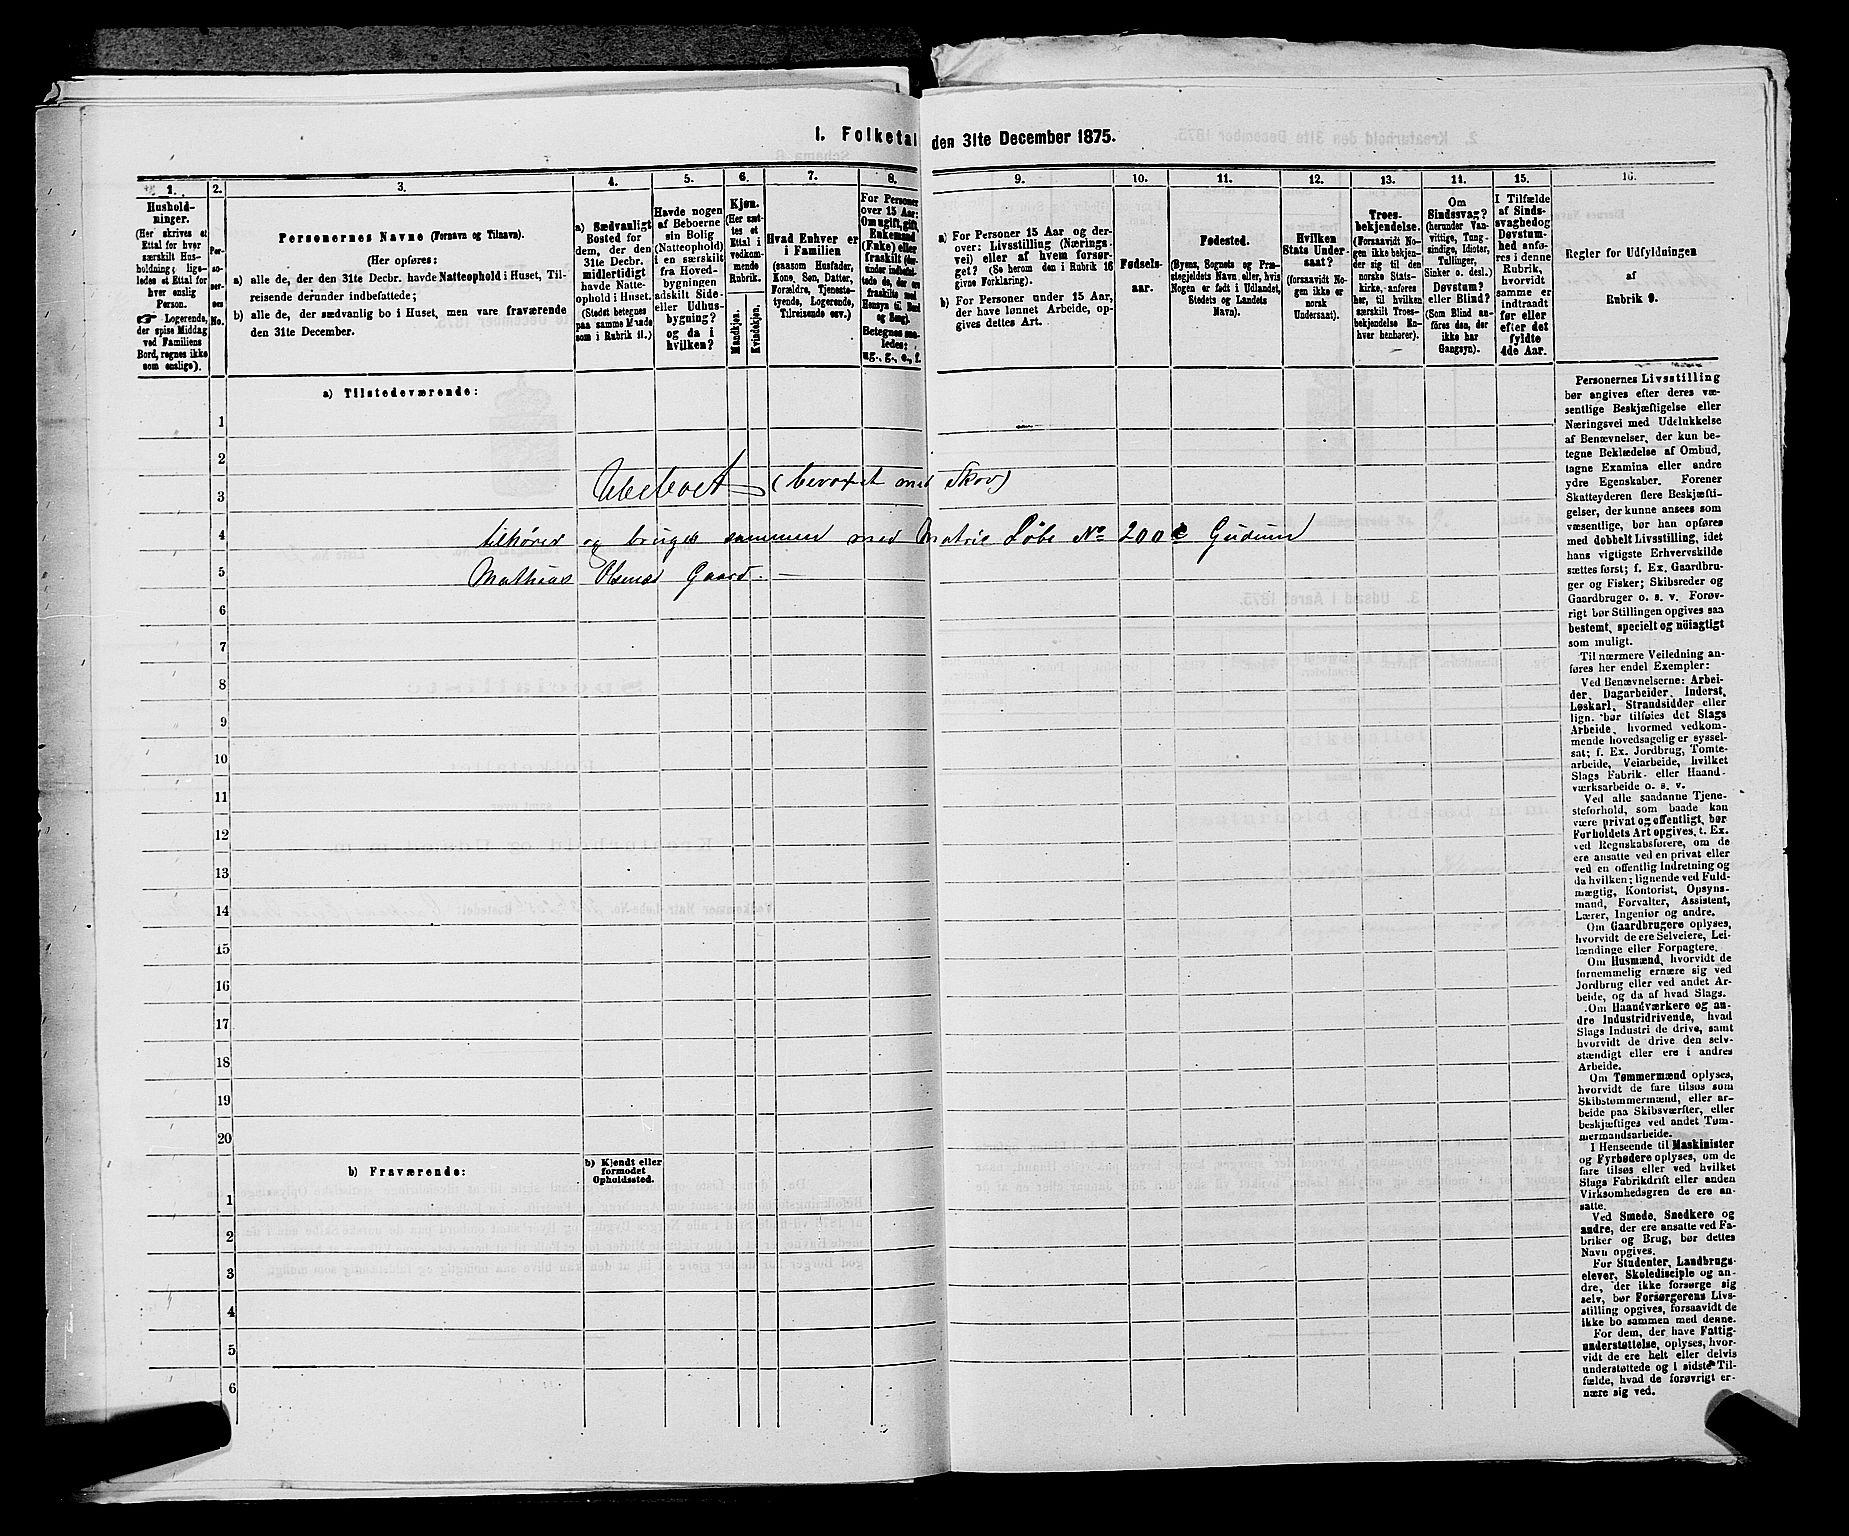 1. Folketal den 31te December 1875.
1.
Hushold-
ninger.
(Her skrives et
Ettal for hver
særskilt Hus-
holdning; lige-
ledes et Ettal for
hver enslig
Person.
☞ Logerende,
der spise Middag
ved Familiens
Bord, regnes ikke
som enslige).
2.
Per-
so-
ner-
nes
No.
3.
Personernes Navne (Fornavn og Tilnavn).
(Her opføres:
a) alle de, der den 31te Decbr. havde Natteophold i Huset, Til-
reisende derunder indbefattede;
b) alle de, der sædvanlig bo i Huset, men vare fraværende
den 31te December.
4.
a) Sædvanligt
Bosted for
dem, der den
31te Decbr.
midlertidigt
havde Natte-
ophold i Huset.
(Stedet betegnes
paa samme Maade
som i Rubrik 11.)
5.
Havde nogen
af Beboerne
sin Bolig
(Natteophold)
i en særskilt
fra Hoved-
bygningen
adskilt Side-
eller Udhus-
bygning?
og da i
hvilken?
6.
Kjøn.
(Her sæt-
tes et
Ettal i
vedkom-
mende
Rubrik.
Mandkjøn.
Kvindekjøn.
7.
Hvad Enhver er
i Familien
(saasom Husfader,
Kone, Søn, Datter,
Forældre, Tjeneste-
tyende, Logerende,
Tilreisende osv.)
8.
For Personer
over 15 Aar:
Om ugift, gift,
Enkemand
(Enke) eller
fraskilt
Betegnes saa-
ledes:
ug., g., e., f.
9.
a) For Personer 15 Aar og der-
over: Livsstilling (Nærings-
vei) eller af hvem forsør-
get? (Se herom den i Rubrik 16
givne Forklaring).
b) For Personer under 15 Aar,
der have lønnet Arbeide, op-
gives dettes Art.
10.
Fødsels-
aar.
11.
Fødested.
(Byens, Sognets og Præ-
stegjeldets Navn eller, hvis
Nogen er født i Udlandet,
Stedets og Landets
Navn).
12.
Hvilken
Stats Under-
saat?
(forsaavidt No-
gen ikke er
norsk
Undersaat).
13.
Troes-
bekjendelse.
(Forsaavidt No-
gen ikke bekjen-
der sig til den
norske Stats-
kirke, anføres
her, til hvilken
særskilt Troes-
bekjendelse En-
hver henhører).
14.
Om
Sindssvag?
(herunder Van-
vittige, Tung-
sindige, Idioter,
Tullinger,
Sinker o. desl.)
Døvstum?
eller Blind?
(Som Blind an-
føres den, der
ikke har
Gangsyn).
15.
I Tilfælde
af Sinds-
svaghed og
Døvstum-
hed anfø-
res i denne
Rubrik,
hvorvidt
samme er
indtraadt
før eller
efter det
fyldte
4de Aar.
16.
Regler for Udfyldningen
af
Rubrik 9.
a) Tilstedeværende:
1
2
3
Ubeboet (bevoxet med Skov)
4
tilhører og bruges sammen med Matric Løbe No 200 c Gudum
5
Mathias Gaard.
6
7
8
9
10
11
12
13
14
15
16
17
18
19
20
b) Fraværende:
b) Kjendt eller
formodet
Opholdssted.
1
2
3
4
5
6
Personernes Livsstilling
bør angives efter deres væ-
sentlige Beskjæftigelse eller
Næringsvei med Udelukkelse
af Benævnelser, der kun be-
tegne Beklædelse af Ombud,
tagne Examina eller andre
ydre Egenskaber. Forener
Skatteyderen flere Beskjæfti-
gelser, der kunne ansees som
væsentlige, bør han opføres
med dobbelt Livsstilling, idet
hans vigtigste Erhvervskilde
sættes først; f. Ex. Gaardbru-
ger og Fisker; Skibsreder og
Gaardbruger o. s. v. Forøv-
rigt bør Stillingen opgives saa
bestemt, specielt og nöiagtigt
som muligt.
Til nærmere Veiledning an-
føres her endel Exempler:
Ved Benævnelserne: Arbei-
der, Dagarbeider, Inderst,
Løskarl, Strandsidder eller
lign. bør tilføies det Slags
Arbeide, hvormed vedkom-
mende hovedsagelig er syssel-
sat; f. Ex. Jordbrug, Tomte-
arbeide, Veiarbeide, hvilket
Slags Fabrik- eller Haand-
værksarbeide o. s. v.
Ved alle saadanne Tjene-
steforhold, som baade kan
være privat og offentligt, bør
Forholdets Art opgives, t. Ex.
ved Regnskabsførere, om de
ere ansatte ved en privat eller
ved en offentlig Indretning og
da hvilken; lignende ved Fuld-
mægtig, Kontorist, Opsyns-
mand, Forvalter, Assistent,
Lærer, Ingeniør og andre.
Om Gaardbrugere oplyses,
hvorvidt de ere Selveiere, Lei-
lændinge eller Forpagtere.
Om Husmænd, hvorvidt de
fornemmelig ernære sig ved
Jordbrug eller ved andet Ar-
beide, og da af hvad Slags.
Om Haandværkere og an-
dre Industridrivende, hvad
Slags Industri de drive, samt
hvorvidt de drive den selv-
stændigt eller ere i andres
Arbeide.
Om Tømmermænd oplyses,
hvorvidt de fare tilsøs som
Skibstømmermænd, eller ar-
beide paa Skibsværfter, eller
beskjæftiges ved andet Tøm-
mermandsarbeide.
I Henseende til Maskinister
og Fyrbødere oplyses, om de
fare tilsøs eller ved hvilket
Slags Fabrikdrift eller anden
Virksomhedsgren de ere an-
satte.
Ved Smede, Snedkere og
andre, der ere ansatte ved Fa-
briker og Brug, bør dettes
Navn opgives.
For Studenter, Landbrugs-
elever, Skoledisciple og an-
dre, der ikke forsørge sig
selv, bør Forsørgerens Livs-
stilling opgives, forsaavidt de
ikke bo sammen med denne.
For dem, der have Fattig-
understøttelse, oplyses, hvor-
vidt de ere helt eller delvis
understøttede og i sidste Til-
fælde, hvad de forøvrigt er-
nære sig ved.